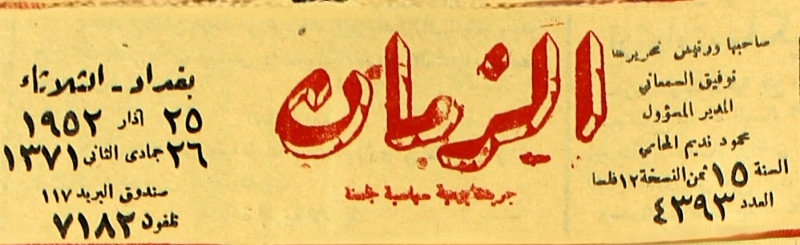 صاحبها ورئيس تحريرها
توفيق السمعاني
المدير المسؤول
محمود نديم المحامي
السنة ١٥ ثمن النسخة ١٢ فلسا
العدد ٤٣٩٣
الزمان
جريدة يومية سياسية
بغداد - الثلاثاء
٢٥ آذار ١٩٥٢
٢٦ جمادى الثاني ١٣٧١
صندوق البريد ١١٧
تلفون ٧١٨٢